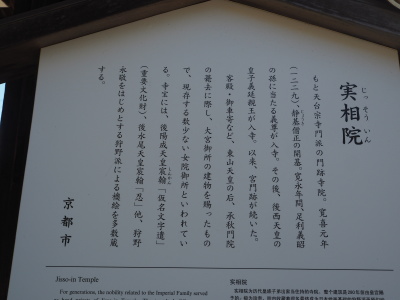 実相院
じっそういん
もと天台宗寺門派の門跡寺院。寛喜元年
(一二二九)、静基僧正の開基。寛永年間、足利義昭
の孫に当たる義尊が入寺。その後、後西天皇の
皇子義延親王が入寺。以来、宮門跡が続いた。
客殿・御車寄など、東山天皇の后、承秋門院
の薨去に際し、大宮御所の建物を賜ったもの
で、現存する数少ない女院御所といわれてい
る。寺宝には、後陽成天皇宸翰「仮名文字遣」
(重要文化財)、後水尾天皇宸翰「忍」他、狩野
永敬をはじめとする狩野派による襖絵を多数蔵
する。
京都市
Jisso-in Temple
For generations, the nobility related to the Imperial Family served
实相院